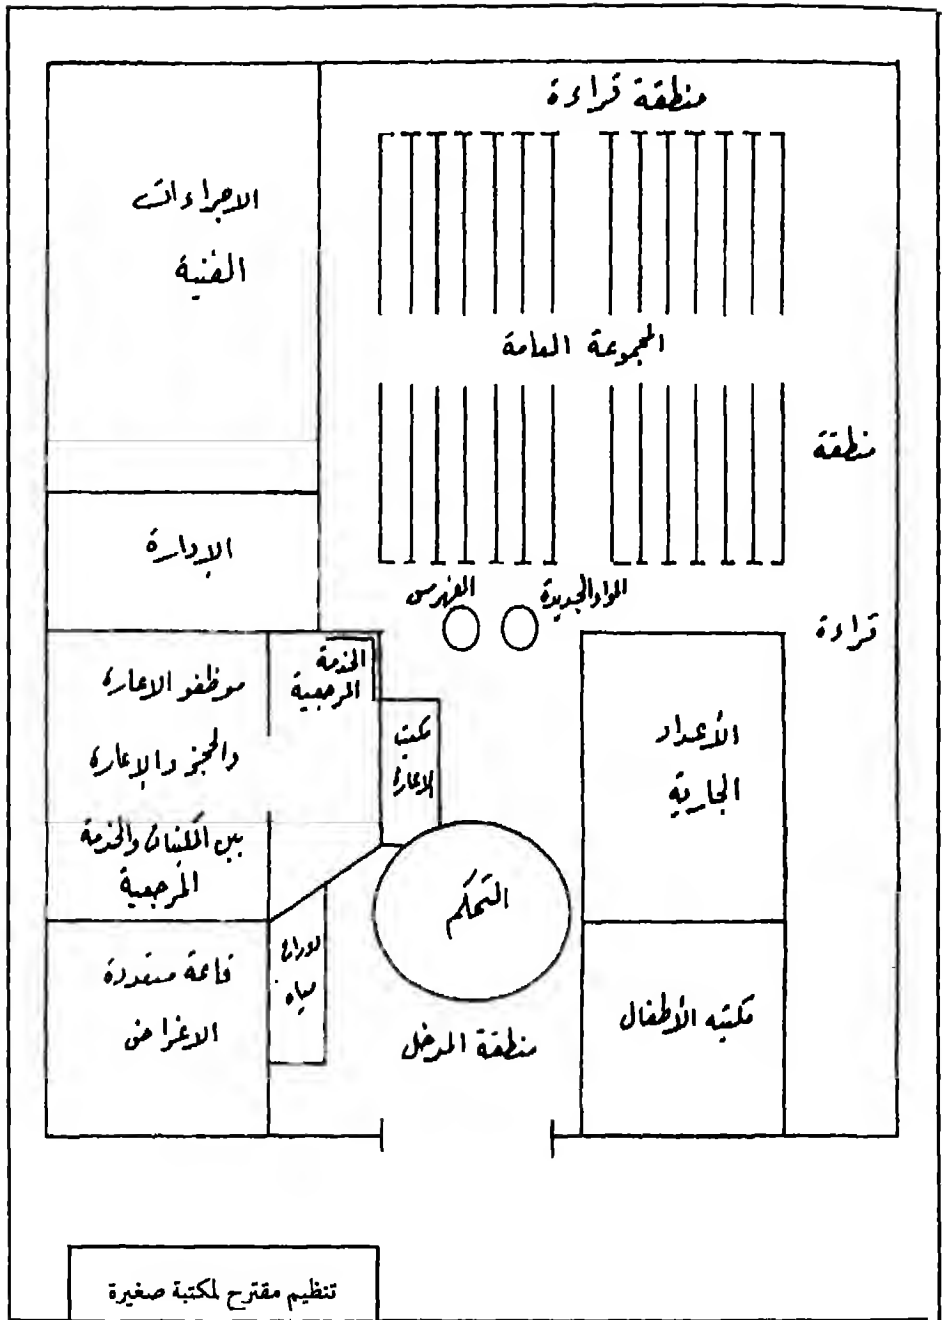 منطقة قراءة
الاجراءات
الفنية
المجموعة العامة
منطقة
قراءة
الإدارة
الفهرس
المواد الجديدة
موظفو الاعارة
والحجز والإعارة
بين المكتبات والخدمة
المرجعية
الخدمة
المرجعية
مكتب
الاعارة
الأعداد
الجارية
التحكم
قاعة متعددة
الاغراض
دورات
مياه
منطقة المدخل
مكتبه الأطفال
تنظيم مقترح لمكتبة صغيرة